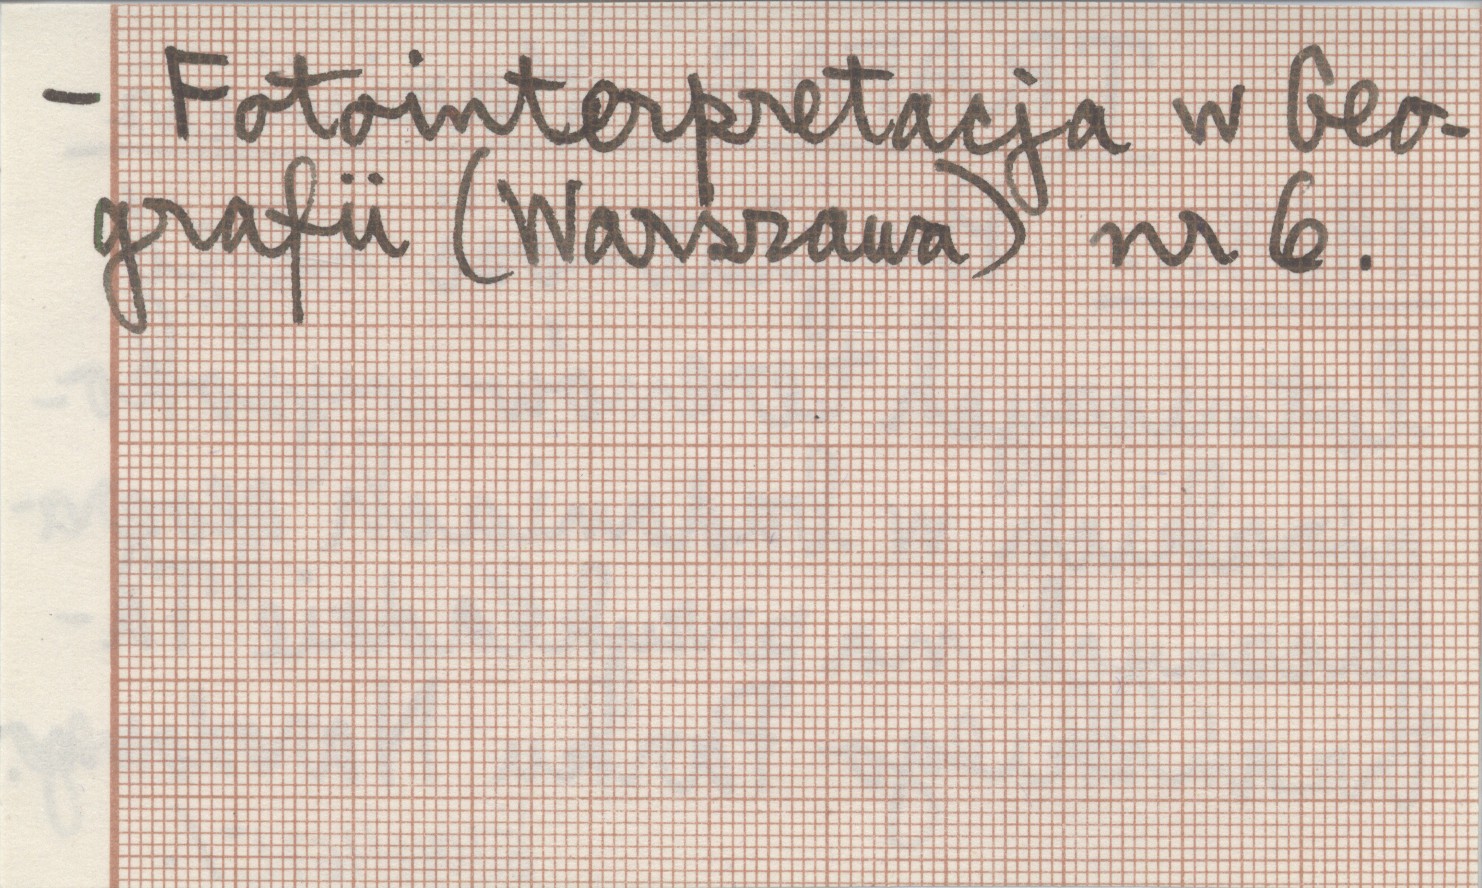 - Fotointerpretacja w Geo-
grafii (Warszawa) nr 6.